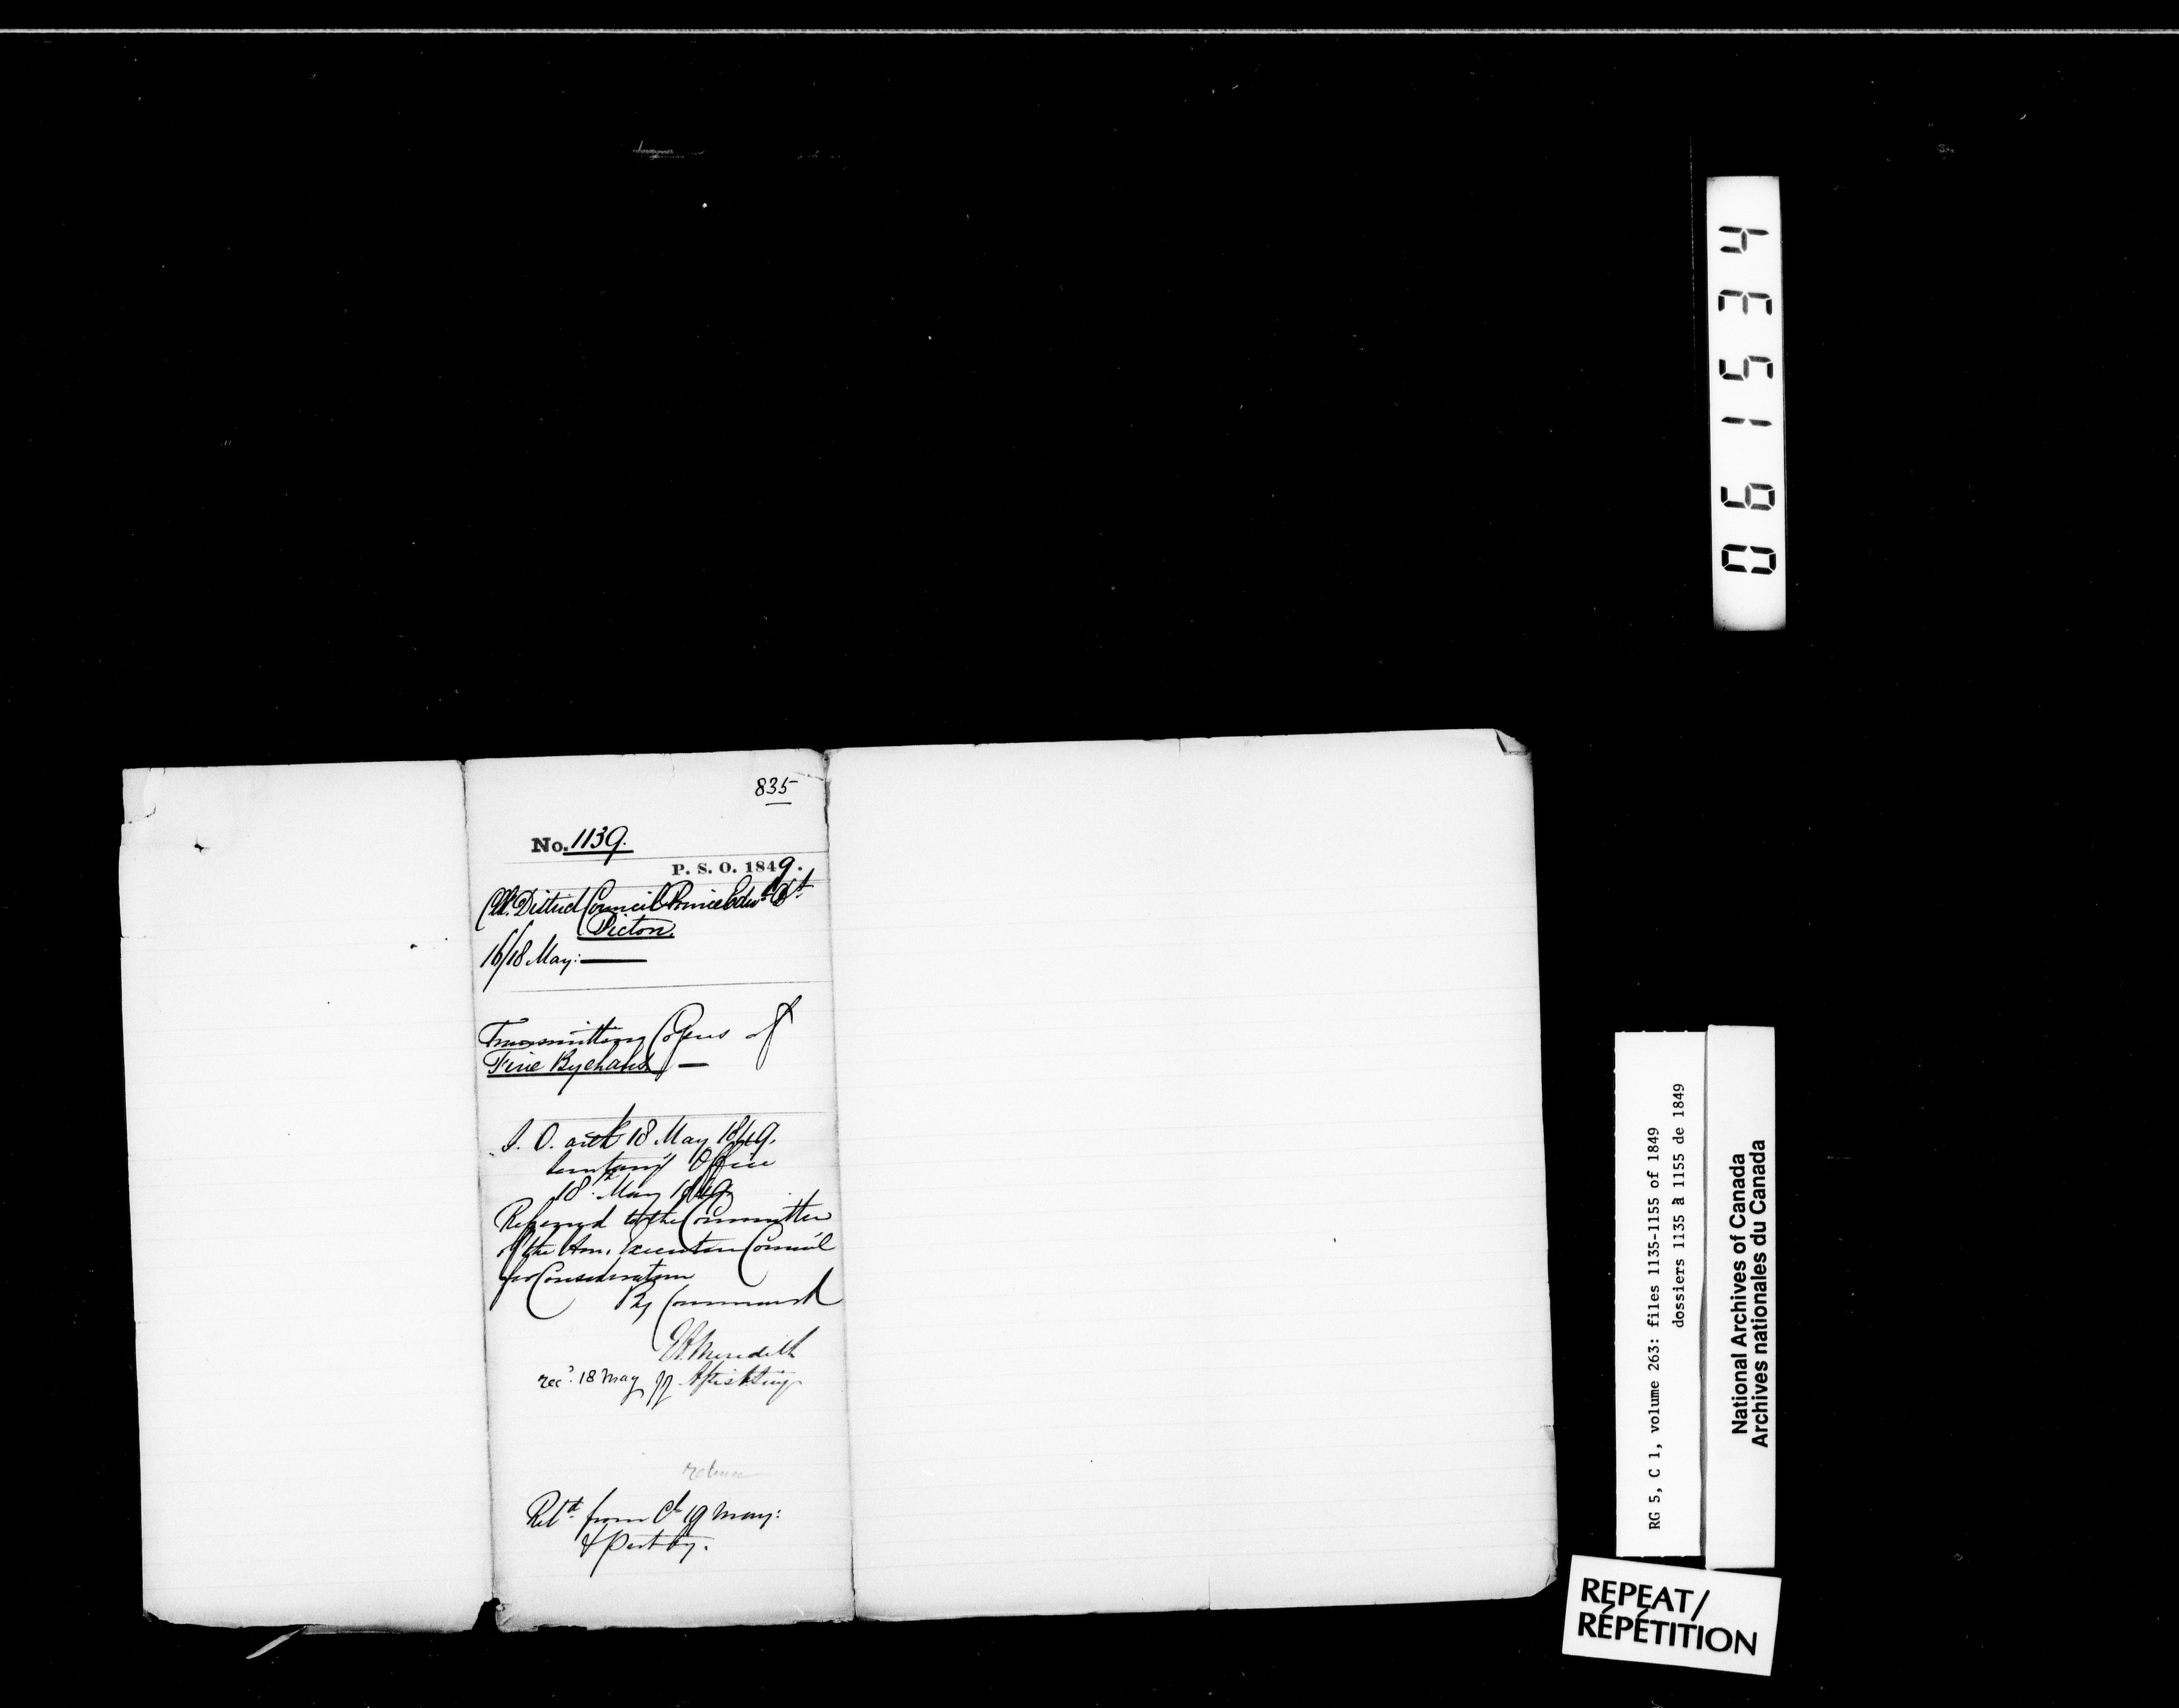 835
No. 1139.
P. S. O. 1849.
Clk. District Council Prince Edwd. Dt.
Picton.
16/18 May:
Transmitting Copies of
Five Bye Laws
L. O. ackd 18 May 1849.
Secretary's Office
18th May 1849
Referred to the Committee
of the Hon. Executive Council
for Consideration
By Command
E A Meredith
recd. 18 May JJ Asst Secy
Retd. from Cl 19 May:
& put by.
061534
RG 5, C 1, volume 263: files 1135-1155 of 1849
dossiers 1135 à 1155 de 1849
National Archives of Canada
Archives nationales du Canada
REPEAT/
RÉPÉTITION